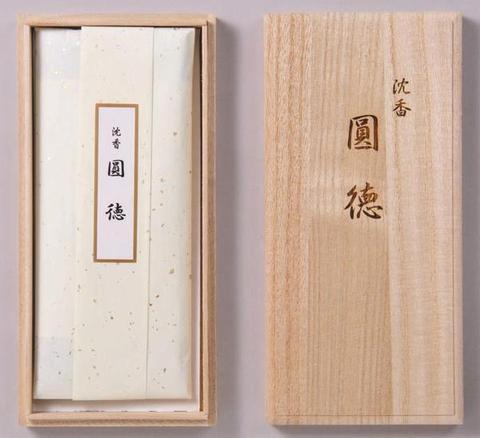 沈香
圓徳
沈香
圓徳